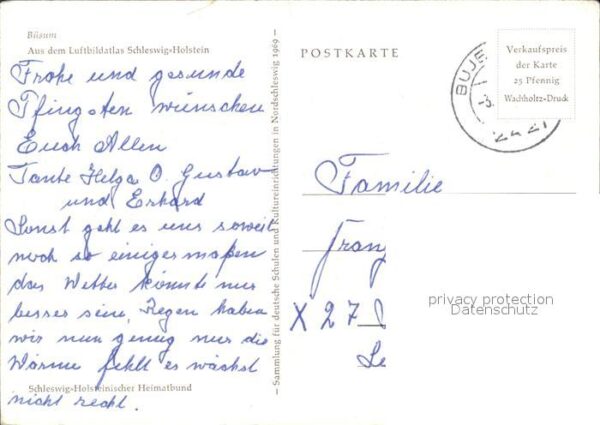 Büsum
Aus dem Luftbildatlas Schleswig-Holstein
Frohe und gesunde
Pfingsten wünschen
Euch Allen
Tante Helga O. Gustav
und Erhard
Sonst geht es uns soweit
noch so einigermaßen
das Wetter könnte nur
besser sein, Regen haben
wir nun genug nur die
Wärme fehlt es wächst
nicht recht.
Schleswig-Holsteinischer Heimatbund
— Sammlung für deutsche Schulen und Kultureinrichtungen in Nordschleswig 1969 —
POSTKARTE
Verkaufspreis
der Karte
25 Pfennig
Wachholtz-Druck
Familie
Franz
X 27
privacy protection
Datenschutz
Le